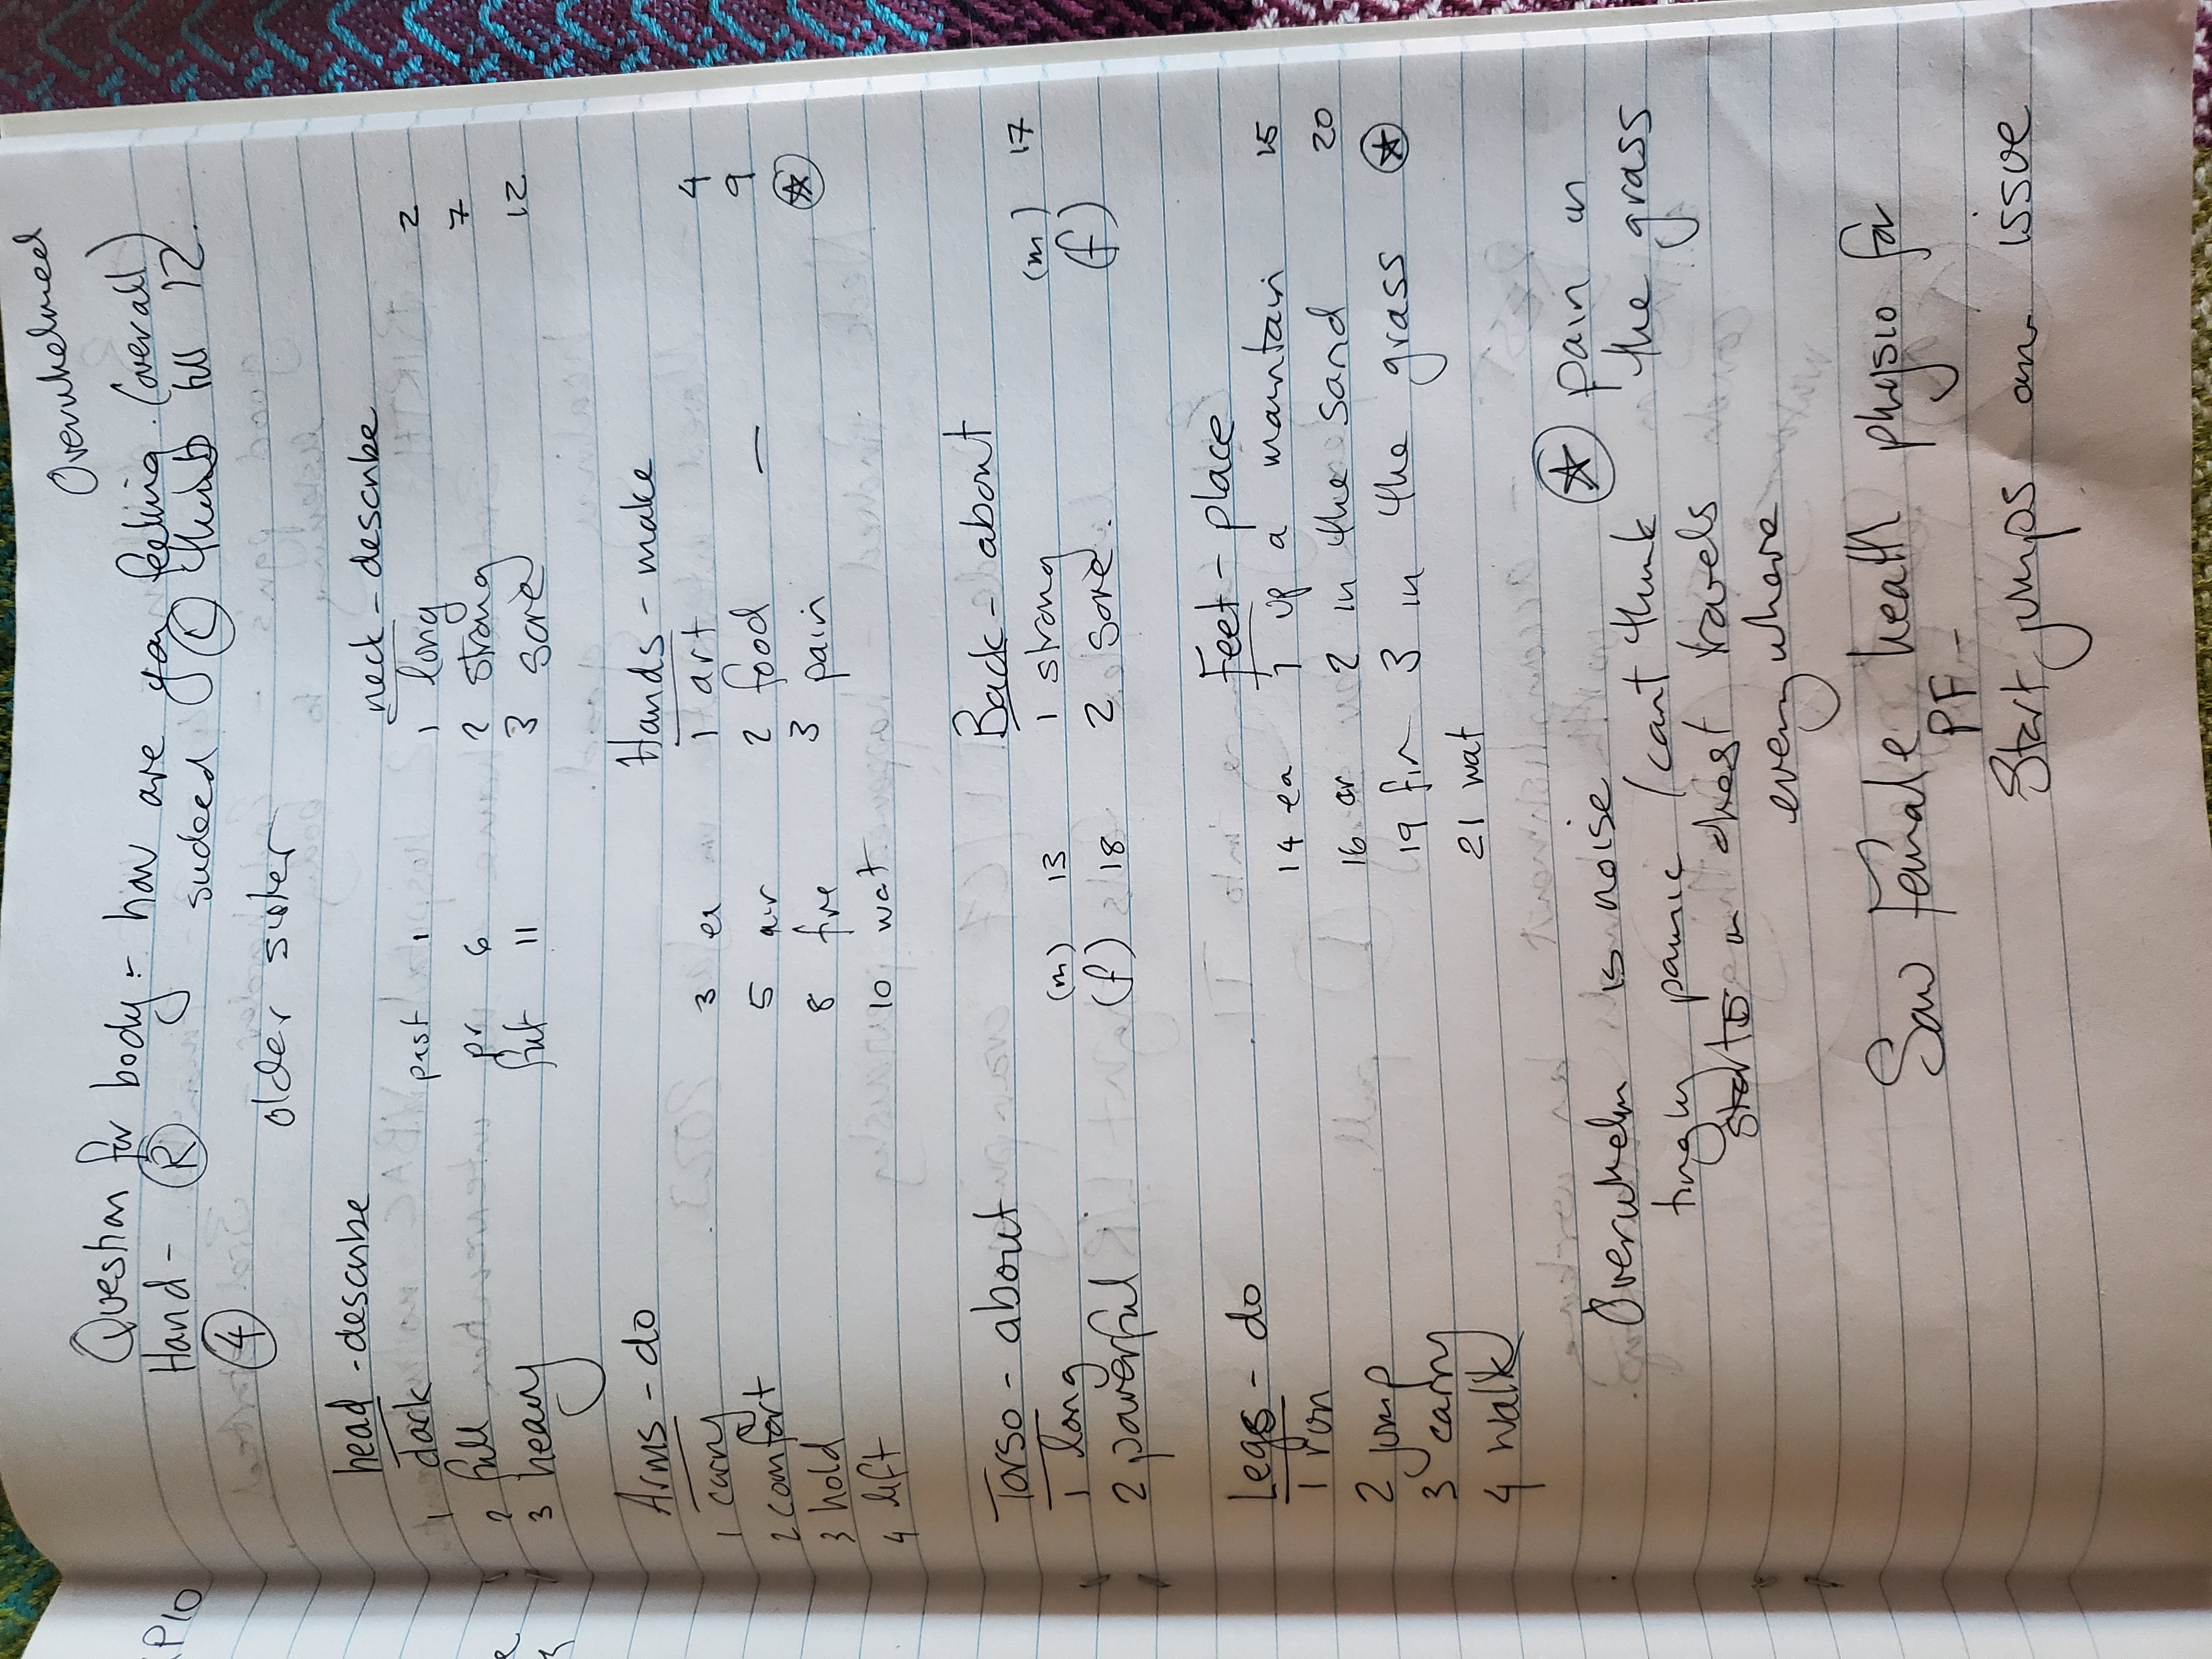 Overwhelmed
Question for body :- how are you feeling (overall)
Hand - R sucked L thumb till 12
4
older sister
head - describe neck - describe
1 dark past 1 1 long 2
2 full pr 6 2 strong 7
3 heavy fut 11 3 sore 12
Arms - do Hands - make
1 carry 3 ea 1 art 4
2 comfort 5 air 2 food — 9
3 hold 8 fire 3 pain ☆
4 lift 10 wat
Torso - about Back - about
1 long (m) 13 1 strong (m) 17
2 powerful (f) 18 2 sore (f)
Legs - do Feet - place
1 run 14 ea 1 up a mountain 15
2 jump 16 air 2 in the sand 20
3 carry 19 fir 3 in the grass ☆
4 walk 21 wat
Overwhelm is noise ☆ pain in
tingly panic / cant think the grass
starts in chest travels
everywhere
Saw Female health physio for
PF -
Start jumps on issue
P10